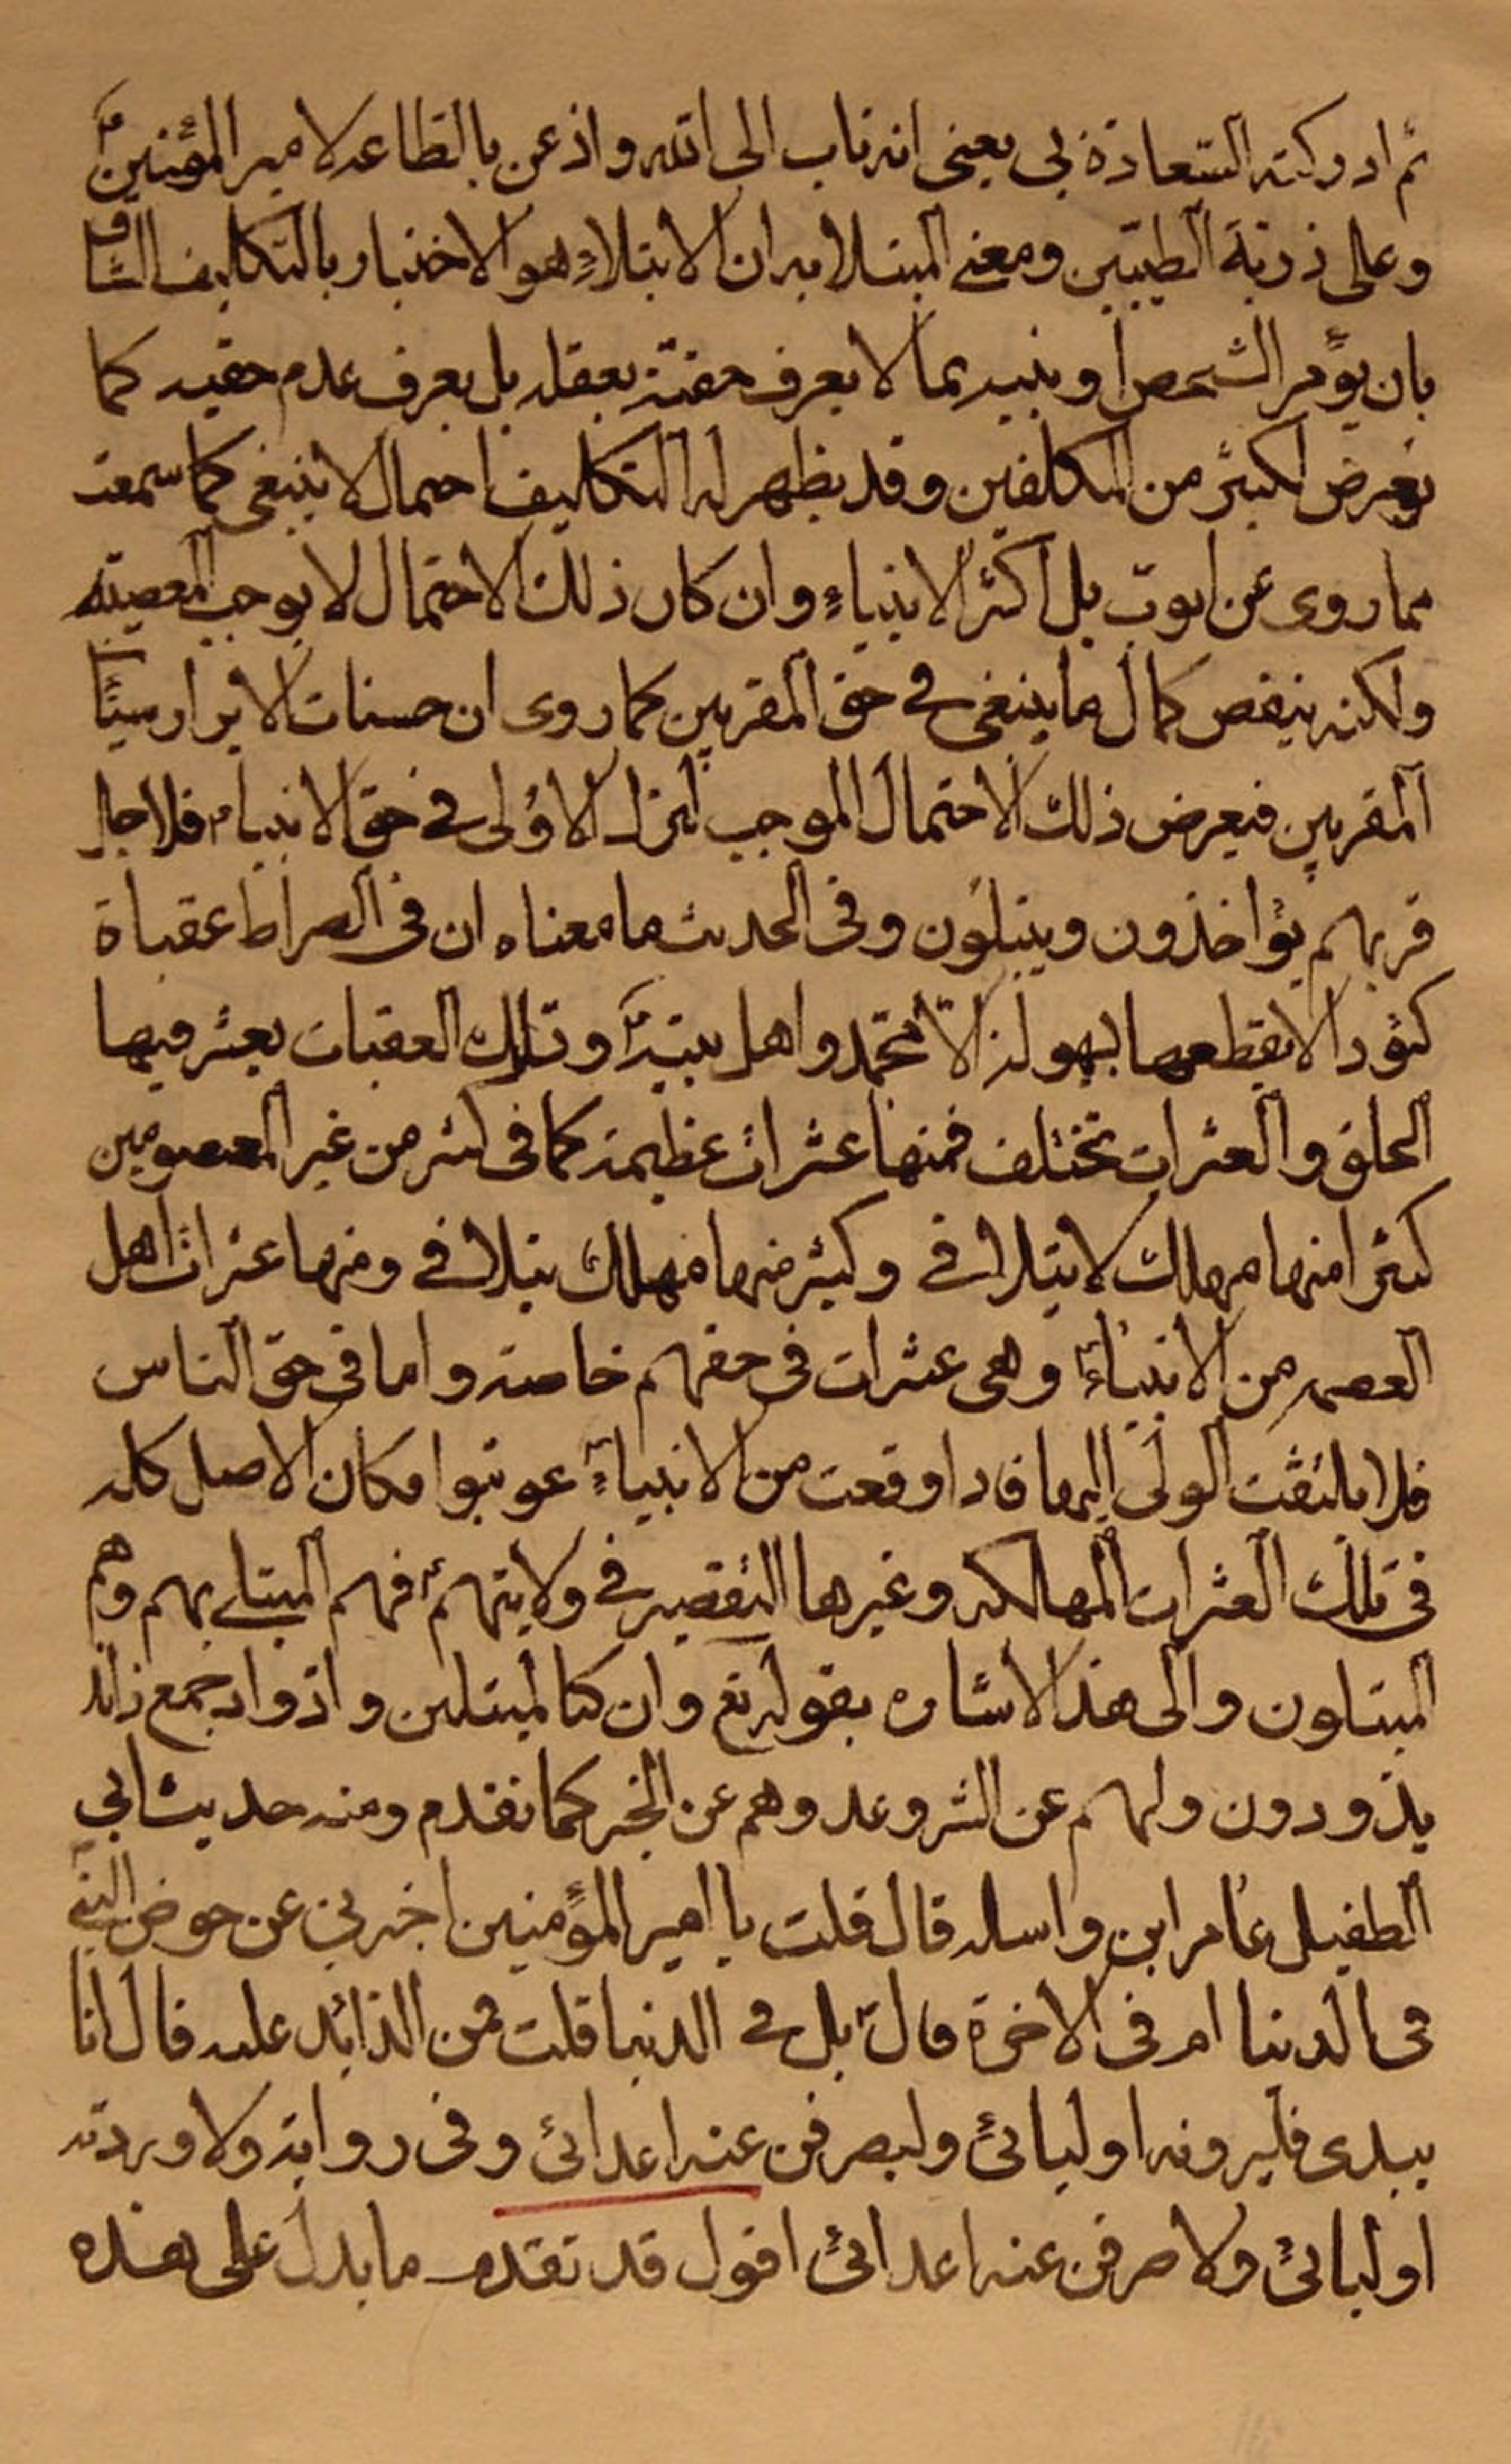 ثم ادركته السعادة بى يعنى انه تاب الى الله واذعن بالطاعه لامير المؤمنينؑ
وعلى ذريته الطيبين ومعنى المبتلا به ان الابتلاءِ هو الاختبار بالتكاليف الشاق
بان يؤمر الشخص او ينبه بما لا يعرف حقيته بعقله بل يعرف عدم حقيه كما
يعرض لكثير من المكلفين وقد يظهر له التكليف احتمال لا ينبغى كما سمعت
مما روى عن ايوب بل اكثر الانبياءِ وان كان ذلك الاحتمال لا يوجب المعصيته
ولكنه ينقص كمال ما ينبغى فى حق المقربين كما روى ان حسنات الابرار سيئات
المقربين فيعرض ذلك الاحتمال الموجب لترك الاؤلى فى حق الانبياء فلاجل
قربهم يؤاخذون ويبتلون وفى الحديث ما معناه ان فى الصراط عقباة
كئودا لا يقطعها بهولة الا محمد واهل بيتهؑ وتلك العقبات يعثر فيها
الخلق والعثرات تختلف فمنها عثرات عظيمة كما فى كثير من غير المعصومين
كثيرا منها مهلك لا يتلافى وكثير منها مهلك يتلافى ومنها عثرات اهل
العصمه من الانبياءؑ وهى عثرات فى حقهم خاصة واما فى حق الناس
فلا يلتفت الولى اليها فاذا وقعت من الانبياءِ عوتبوا فكان الاصل كله
فى تلك العثرات المهالكه وغيرها التقصير فى ولايتهمؑ فهم المبتلى بهم وهم
المبتلون والى هذا الاشاره بقوله تع وان كنا لمبتلين واذواد جمع ذائد
يذودون وليهم عن الشر وعدوهم عن الخير كما تقدم ومنه حديث ابى
الطفيل عامر ابن واسله قال قلت يا امير المؤمنين اخبرنى عن حوض النبى
فى الدنيا ام فى الاخرة قال بل فى الدنيا قلت فمن الذائد عليه قال انا
بيدى فليرونه اوليائى وليصرفن عنه اعدائى وفى رواية ولاوردنه
اوليائى ولاصرفن عنه اعدائى اقول قد تقدم ما يدل على هذه